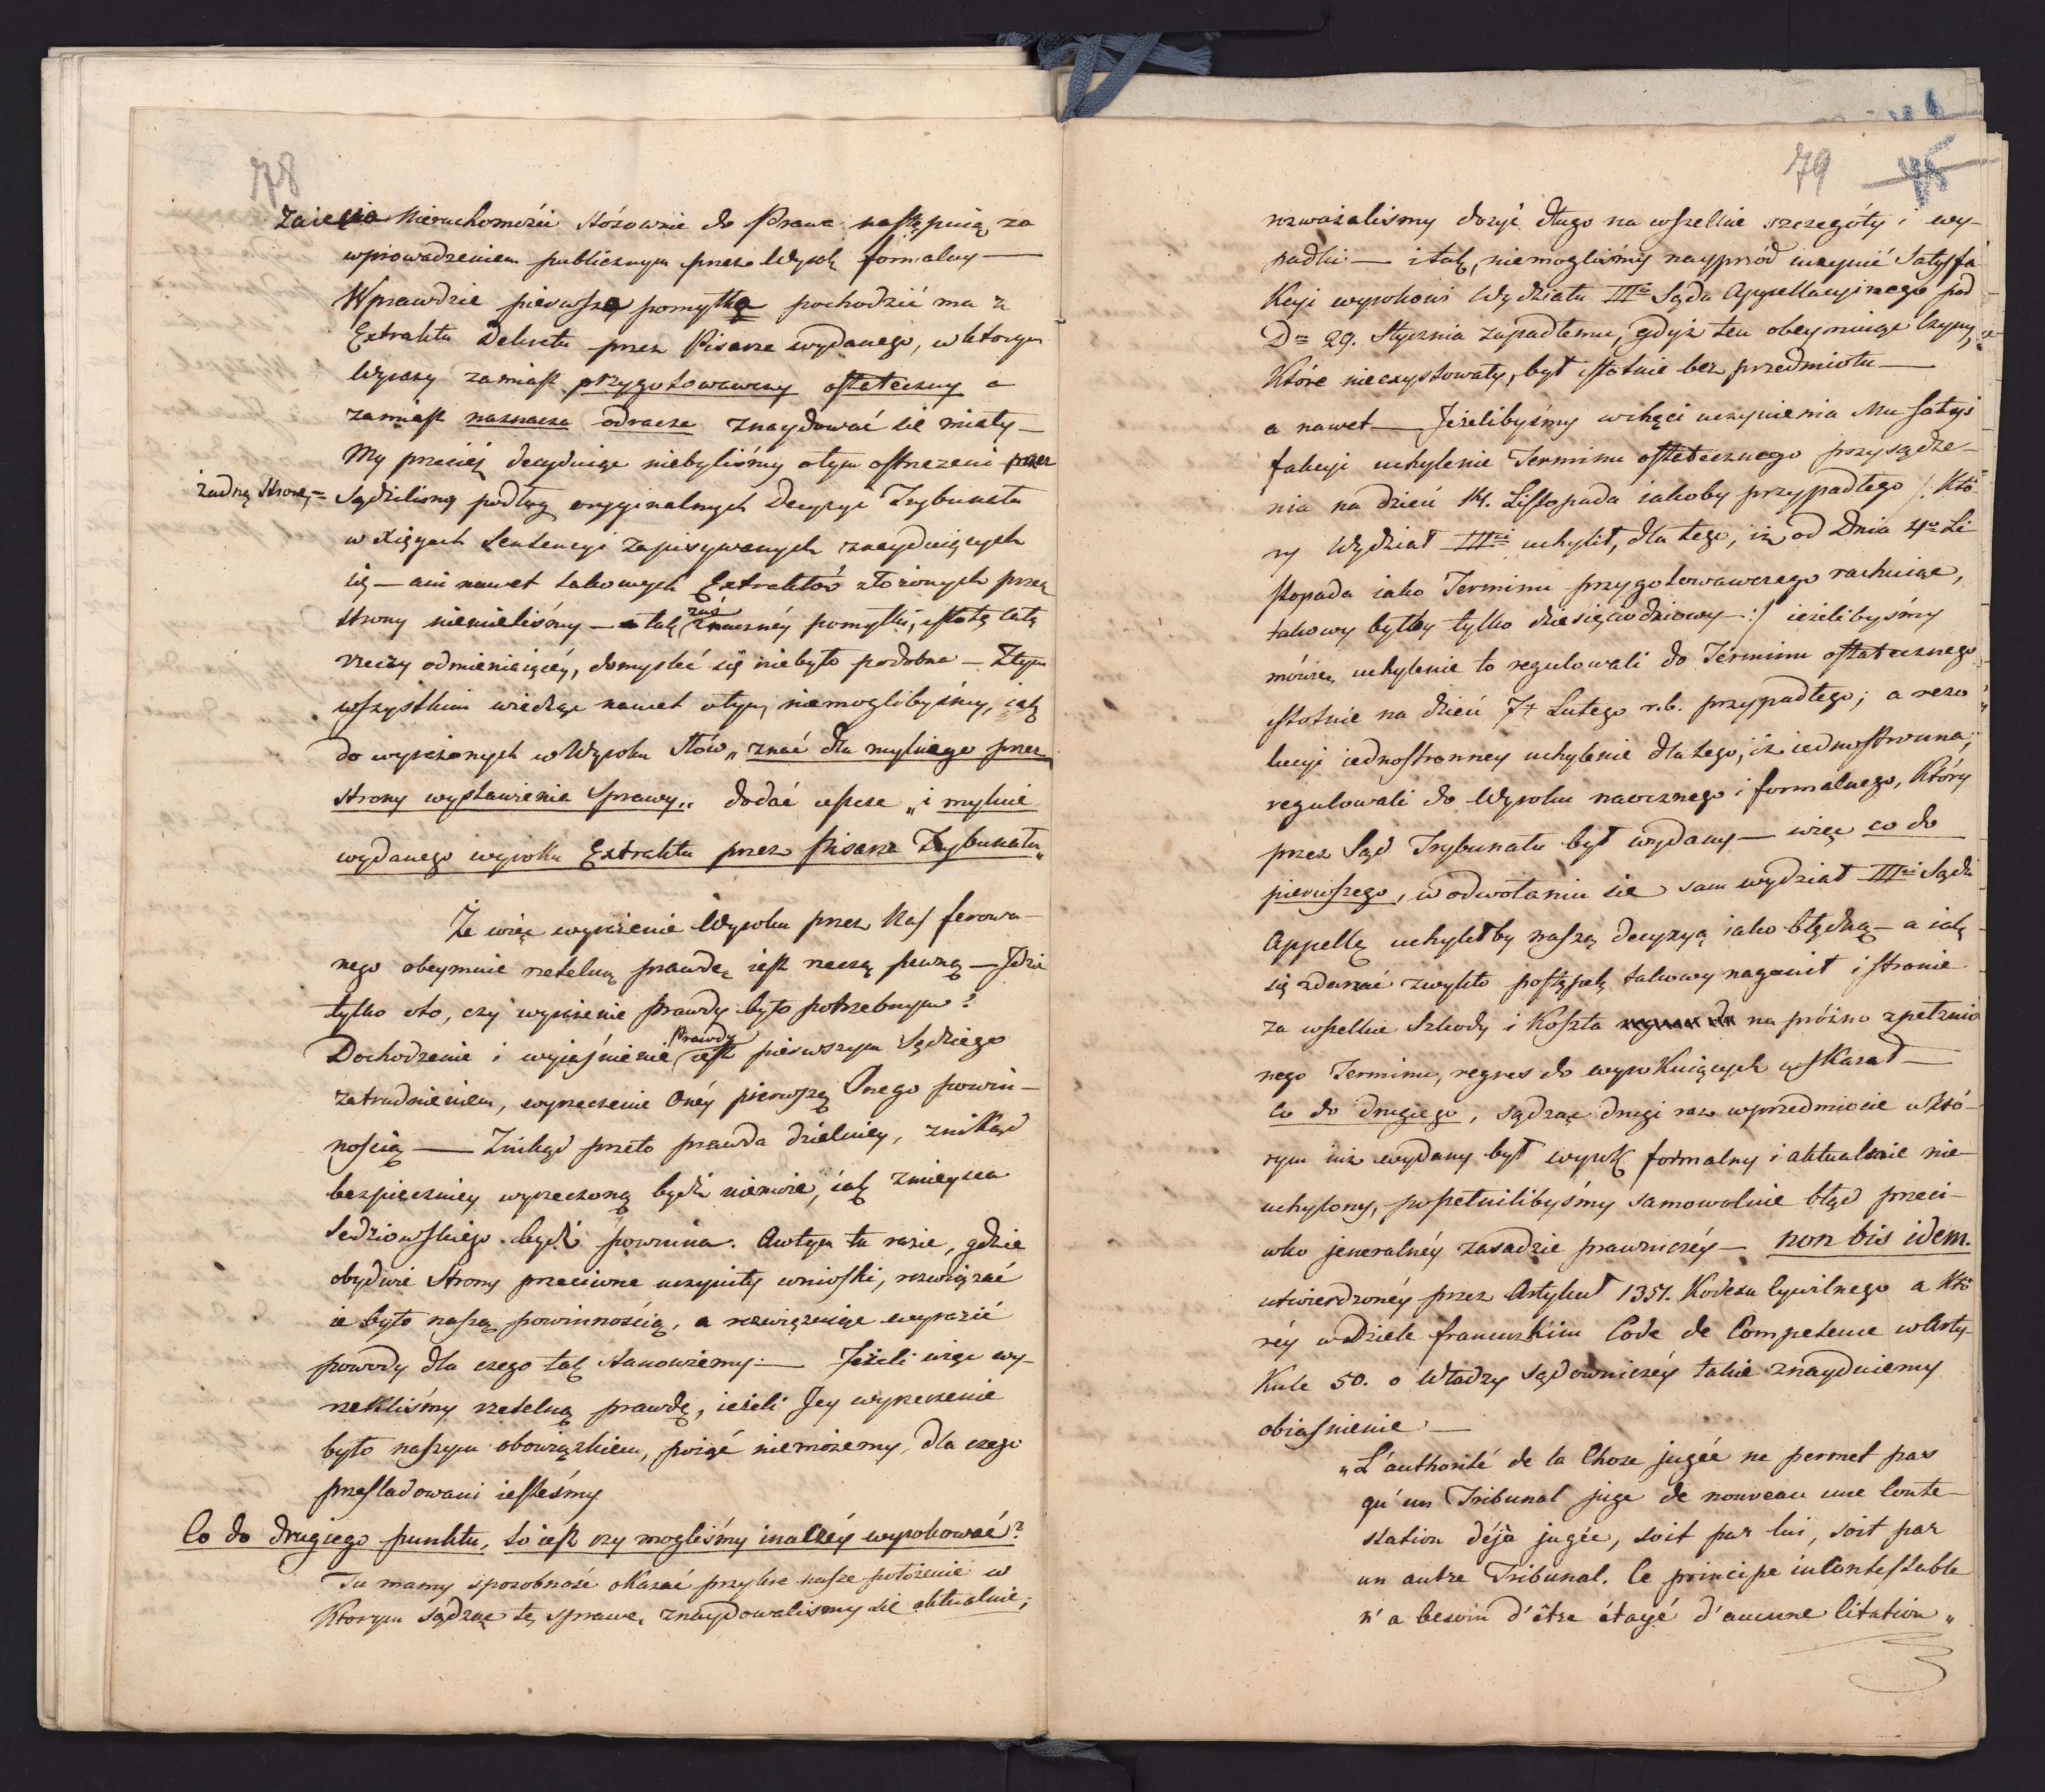 78
Zaięcia Nieruchomości stósownie do Prawa nastąpiią za
wprowadzeniem publicznym przez Wyrok formalny —
Wprawdzie pierwsza pomyłka pochodzić ma z
Extraktu Dekretu przez Pisarza wydanego, w ktorym
Wyrazy zamiast przygotowawczy ostateczny a
zamiast naznacza odracza znaydować się miały —
My przeciéż decyduiąc niebyliśmy otym ostrzeżeni przez
żadną Stronę = Sądziliśmy podług oryginalnych Decyzyi Trybunału
w Xięgach Sentencyi zapisywanych znayduiących
się — ani nawet takowych Extraktów złożonych przez
Strony niemieliśmy — tak zaś znacznéy pomyłki, istotę całą
rzeczy odmieniaiącéy, domyslić się niebyło podobna — Ztym
wszystkim wiedząc nawet otym, niemoglibyśmy, iak
do wyrażonych w Wyroku słów „znać dla mylnego przez
Strony wystawienia Sprawy„ dodać ieszcze „i mylnie
wydanego wyroku Extraktu przez Pisarza Trybunału„
Że więc wyrażenie Wyroku przez Nas ferowa-
nego obeymuie rzetelną prawdę iest rzeczą pewną — Idzie
tylko oto, czy wyrażenie Prawdy było potrzebnym?
Dochodzenie i wyiaśnienie Prawdy iest pierwszym Sędziego
zatrudnieniem, wyrzeczenie Onéy pierwszą Onego powin-
nością — Znikąd przeto prawda dzielniey, znikąd
bezpieczniey wyrzeczoną bydź niemoże, iak z mieysca
Sedziowskiego bydź powinna. A w tym tu razie, gdzie
obydwie Strony przeciwne uczyniły wnioski, rozwiązać
ie było naszą powinnością, a rozwiązuiąc wyrazić
powody dla czego tak stanowiemy. — Jeżeli więc wy-
rzekliśmy rzetelną prawdę, ieżeli Jey wyrzeczenie
było naszym obowiązkiem, poiąć niemożemy, dla czego
prześladowani iesteśmy
Co do drugiego punktu, to iest czy mogliśmy inaczéy wyrokować?
Tu mamy sposobność okazać przykre nasze położenie w
Ktorym sądząc tę sprawę, znaydowaliśmy się aktualnie,
79
rozważaliśmy dosyć długo na wszelkie szczegóły i wy-
padki — i tak, niemogliśmy nayprzód uczynić Satysfa
Kcyi wyrokowi Wydziału IIIo Sądu Appellacyinego pod
Dm 29. Stycznia zapadłemu, gdyż ten obeymuiąc Czyny,
Które nieexystowały, był istotnie bez przedmiotu —
a nawet — Jeżelibyśmy w chęci uczynienia Mu satys
fakcyi uchylenie Terminu ostatecznego przysądze-
nia na dzień 14. Listopada iakoby przypadłego /: Któ-
ry Wydział IIIci uchylił, dla tego, iż od Dnia 4o Li-
stopada iako Terminu przygotowawczego rachuiąc,
takowy byłby tylko dziesięciodniowy :/ ieżelibyśmy
mówię uchylenie to regulowali do Terminu ostatecznego
istotnie na dzień 7 Lutego r.b. przypadłego; a rezo
lucyi iednostronney uchylenie dla tego, iż iednostronna,
regulowali do Wyroku naocznego i formalnego, Który
przez Sąd Trybunału był wydany — więc co do
pierwszego, w odwołaniu się sam wydział IIIci Sądu
Appellę uchyliłby naszą decyzyą iako błędną — a iak
się zdarzać zwykło postępek takowy naganił i stronie
za wszelkie Szkody i Koszta na próżno spełznio
nego Terminu, regres do wyrokuiących wskazał —
Co do drugiego, sądząc drugi raz w przedmiocie w któ-
rym iuż wydany był wyrok formalny i aktualnie nie
uchylony, popełnilibyśmy samowolnie błąd przeci-
wko jeneralnéy zasadzie prawniczéy — non bis idem.
utwierdzonéy przez Artykuł 1351. Kodexu Cywilnego a Któ
réy w Dziele francuskim Code de Competence w Arty-
Kule 50. o Władzy Sądowniczéy takie znayduiemy
obiaśnienie —
„L'authorité de la Chose jugée ne permet pas
qu'un Tribunal juge de nouveau une Conte-
station déjà jugée, soit par lui, soit par
un autre Tribunal. Ce principe inContestable
n'a besoin d'être étayé d'aucune Citation„